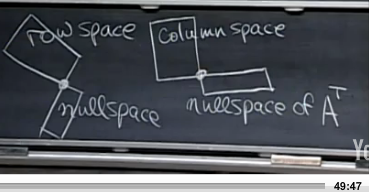 row space
column space
nullspace
nullspace of Aᵀ
49:47